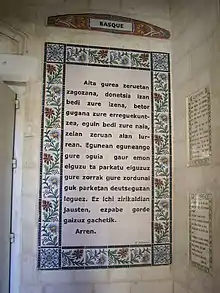 BASQUE
Aita gurea zeruetan
zagozana, donetsia izan
bedi zure izena, betor
gugana zure erreguekunt-
zea, eguin bedi zure naia,
zelan zeruan alan lur-
rean. Egunean eguneango
gure oguia gaur emon
eiguzu ta parkatu eiguzuz
gure zorrak gure zordunai
guk parketan deutseguzan
leguez. Ez ichi zirikaldian
jausten, ezpabe gorde
gaizuz gachetik.
Arren.